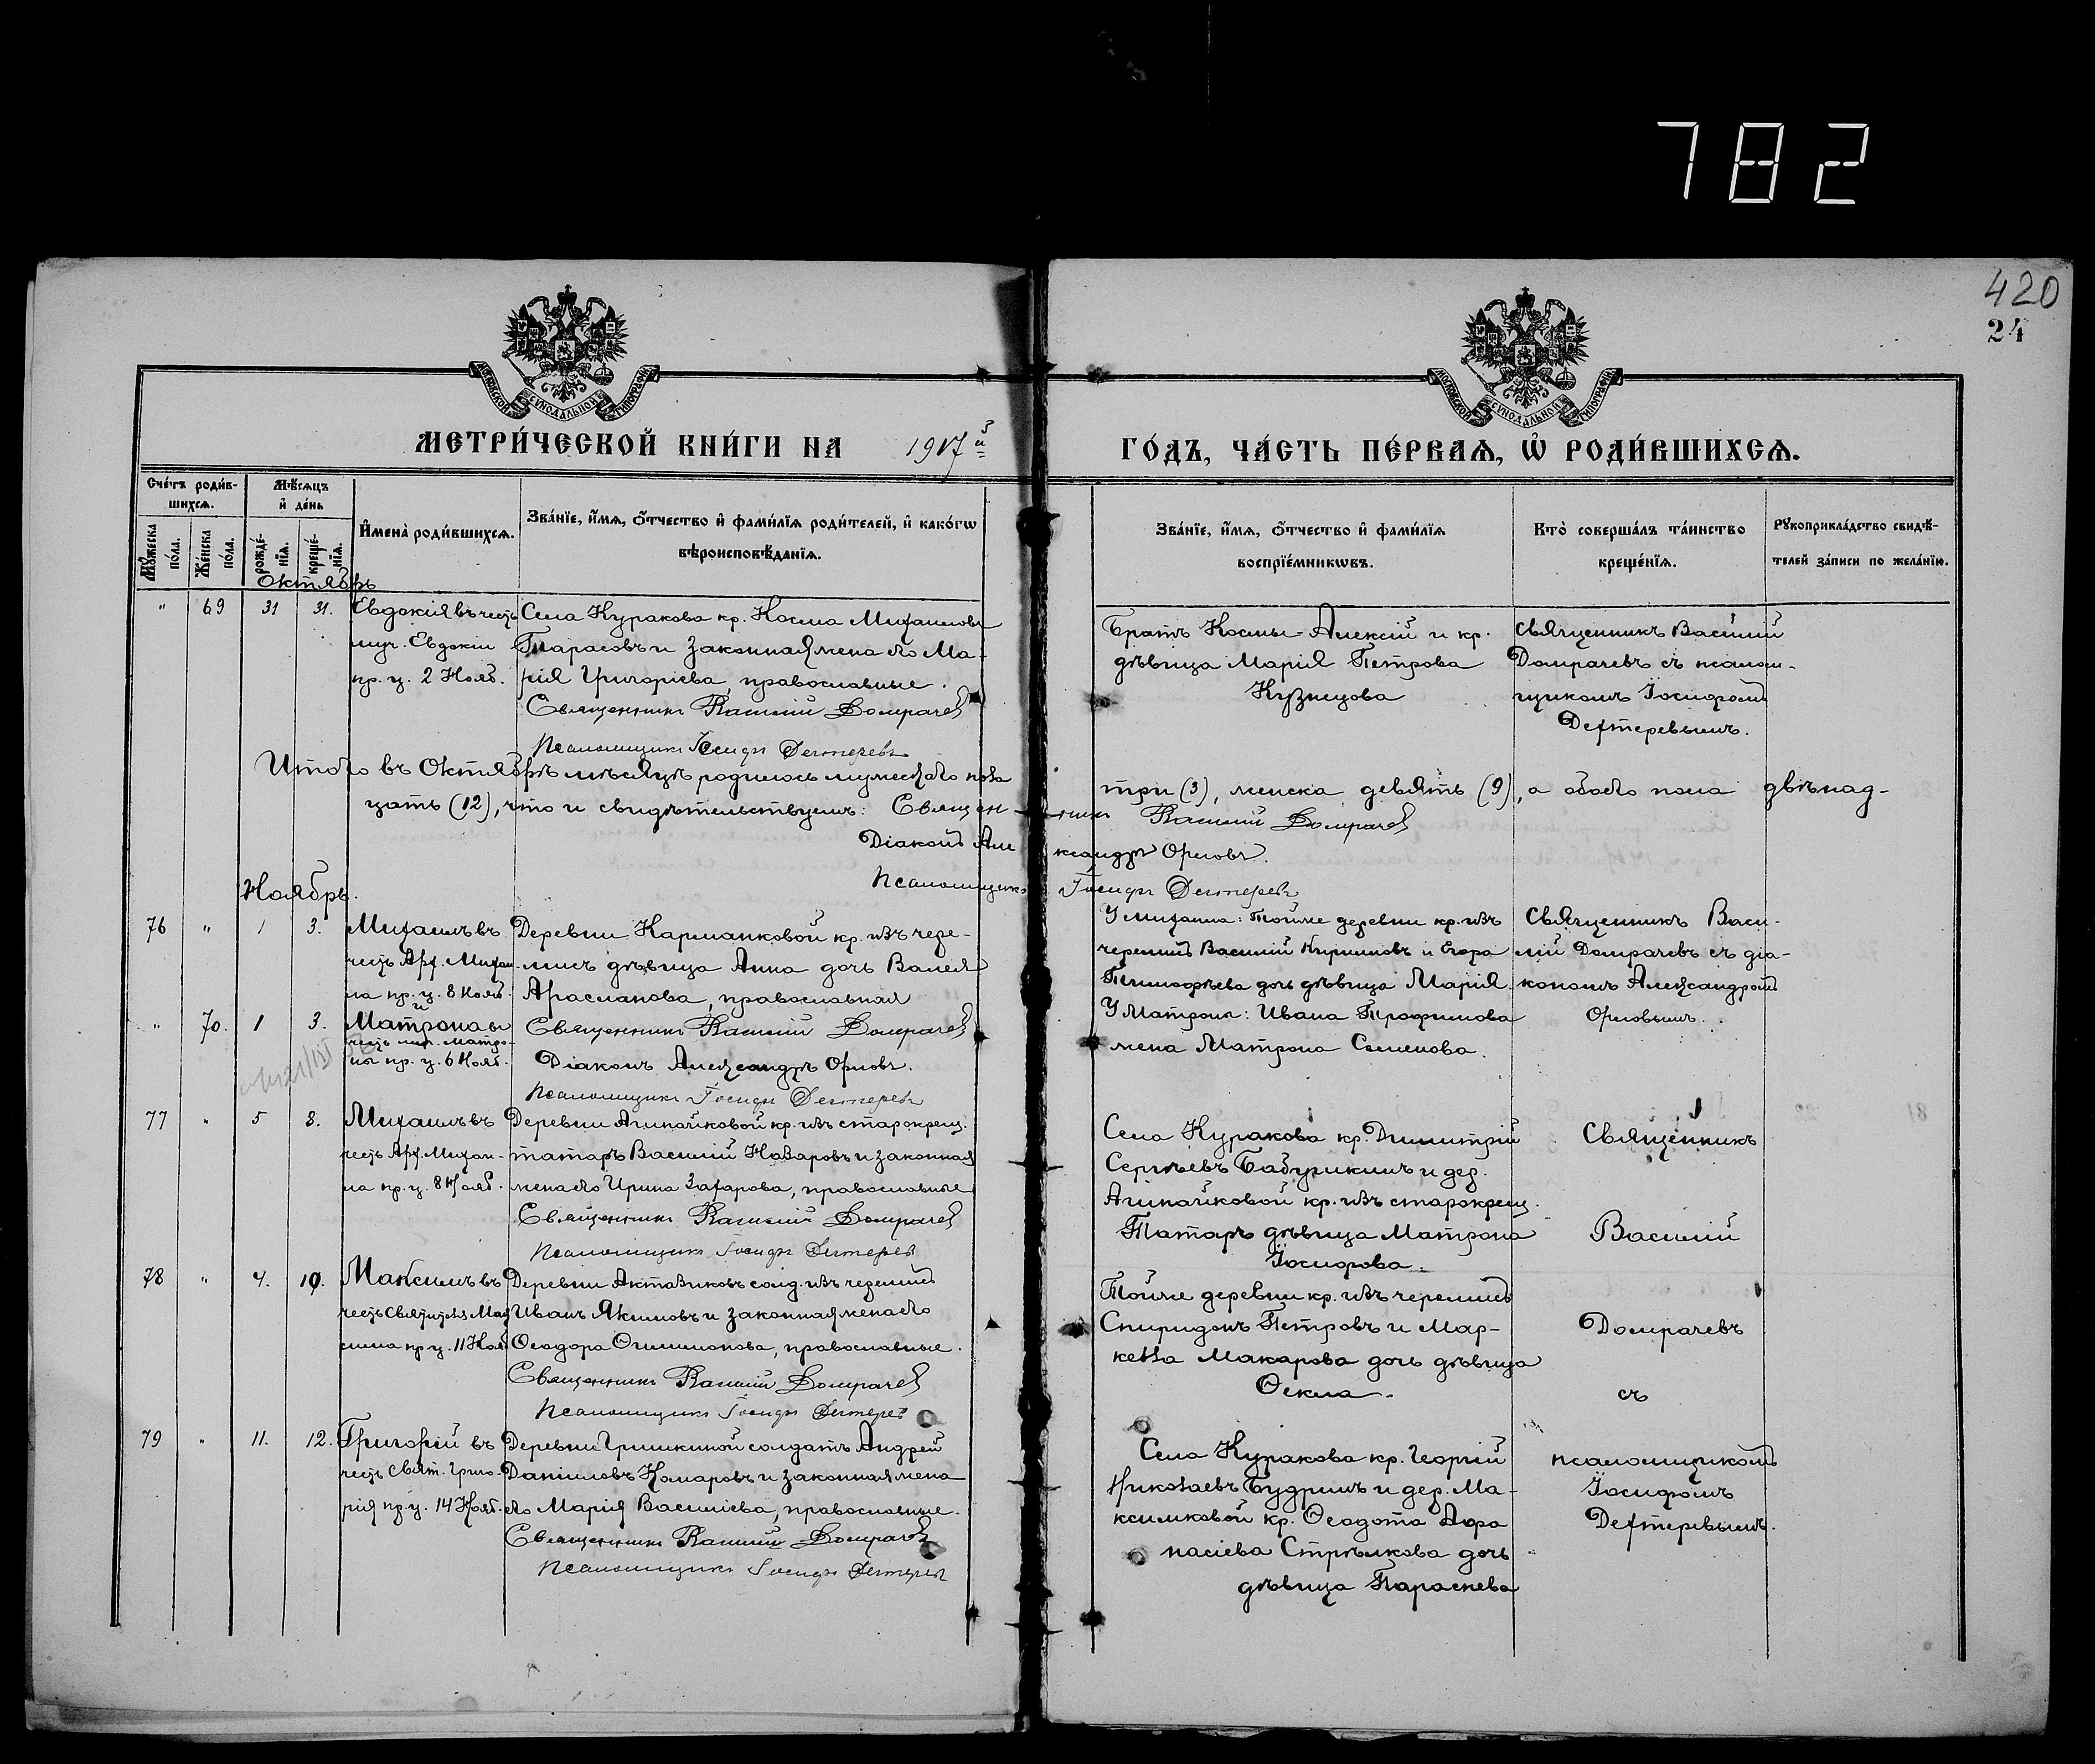 782
420
24
МОСКОВСКОЙ СѴНОДАЛЬНОЙ ТИПОГРАФІИ
МОСКОВСКОЙ СѴНОДАЛЬНОЙ ТИПОГРАФІИ
МЕТРИ́ЧЕСКОЙ КНИ́ГИ НА 1917й ГО́ДЪ, ЧА́СТЬ ПЕ́РВАѦ, Ѡ҆ РОДИ́ВШИХСѦ.
Сче́тъ роди́в-
шихсѧ.
Мꙋ́жеска по́ла.
Же́нска по́ла.
Мѣ́сѧцъ
и҆ де́нь
рожде́-
нїѧ.
креще́-
нїѧ.
И҆мена̀ роди́вшихсѧ.
Зва́нїе, и҆́мѧ, ѻ҆́тчество и҆ фами́лїѧ роди́телей, и҆ како́гѡ
вѣроисповѣ́данїѧ.
Зва́нїе, и҆́мѧ, ѻ҆́тчество и҆ фами́лїѧ
воспрїе́мникѡвъ.
Кто̀ соверша́лъ та́инство
креще́нїѧ.
Рꙋкоприкла́дство свидѣ́-
телей за́писи по жела́нїю.
Октябрь
" 69 31 31.
Евдокія въ честь
муч. Евдокіи
пр. ц. 2 Нояб.
Села Куракова кр. Косма Михаиловъ
Тарасовъ и законная жена его Ма-
рія Григоріева, православные.
Священникъ Василій Домрачев
Псаломщикъ Іосифъ Дехтеревъ
Братъ Космы Алексій и кр.
дѣвица Марія Петрова
Кузнецова
Священникъ Василій
Домрачевъ съ псалом-
щикомъ Іосифомъ
Дехтеревымъ.
Итого въ Октябрѣ мѣсяцѣ родилось мужескаго пола три (3), женска девять (9), а обоего пола двѣнад-
цать (12), что и свидѣтельствуемъ: Священникъ Василій Домрачев
Діаконъ Александръ Орловъ.
Псаломщикъ Іосифъ Дехтеревъ
Ноябрь.
76 " 1 3.
Михаилъ въ
честь Арх. Михаи-
ла пр. ц. 8 Нояб.
и
" 70. 1 3.
Матрона въ
честь муч. Матро-
ны пр. ц. 6 Нояб.
Деревни Карманковой кр. изъ чере-
мисъ дѣвица Анна дочь Валея
Арасланова, православная
Священникъ Василій Домрачев
Діаконъ Александръ Орловъ.
Псаломщикъ Іосифъ Дехтеревъ
У Михаила: Тойже деревни кр. изъ
черемисъ Василій Кириловъ и Егора
Тимофѣева дочь дѣвица Марія.
У Матроны: Ивана Трофимова
жена Матрона Семенова.
Священникъ Васи-
лій Домрачевъ съ діа-
кономъ Александромъ
Орловымъ.
77 " 5 8.
Михаилъ въ
честь Арх. Михаи-
ла пр. ц. 8 Нояб.
Деревни Агинайковой кр. изъ старокрещ.
татаръ Василій Назаровъ и законная
жена его Ирина Захарова, православные
Священникъ Василій Домрачев
Псаломщикъ Іосифъ Дехтерев
Села Куракова кр. Димитрій
Сергѣевъ Бабушкинъ и дер.
Агинайковой кр. изъ старокрещ.
Татаръ дѣвица Матрона
Іосифова.
Священникъ
Василій
78 " 4. 10.
Максимъ въ
честь Святителя Мак
сима пр. ц. 11 Нояб
Деревни Актазиковъ солд. изъ черемисъ
Иванъ Якимовъ и законная жена его
Ѳеодора Филимонова, православные.
Священникъ Василій Домрачев
Псаломщикъ Іосифъ Дехтерев
Тойже деревни кр. изъ черемисъ
Спиридонъ Петровъ и Мар-
кела Макарова дочь дѣвица
Ѳекла.
Домрачевъ
съ
79 " 11. 12.
Григорій въ
честь Свят. Григо-
рія пр. ц. 14 Нояб.
Деревни Гришкиной солдатъ Андрей
Даніиловъ Комаровъ и законная жена
его Марія Василіева, православные.
Священникъ Василій Домрачев
Псаломщикъ Іосифъ Дехтерев
Села Куракова кр. Георгій
Николаевъ Будринъ и дер. Ма-
ксимковой кр. Ѳеодота Афа
насіева Стрѣлкова дочь
дѣвица Параскева
псаломщикомъ
Іосифомъ
Дехтеревымъ.